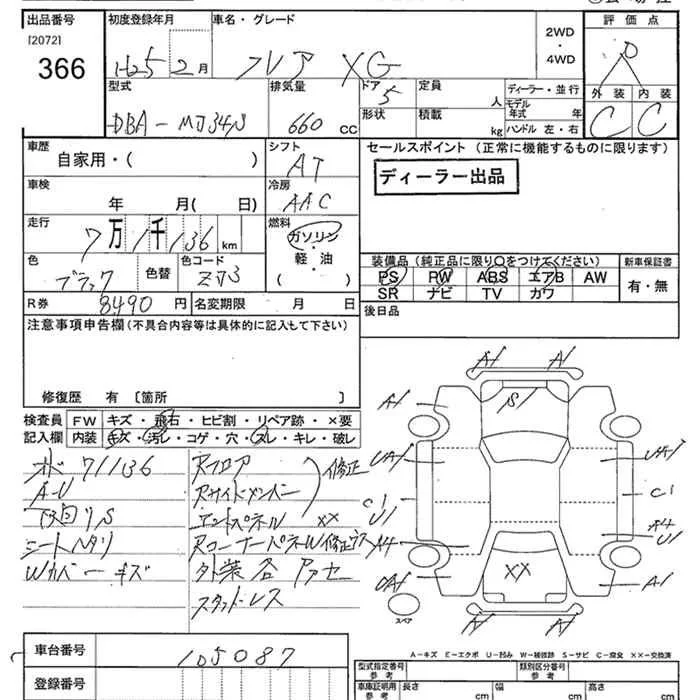 出品番号 初度登録年月 車名・グレード 評価点
[2072] 2WD
366 H25 2月 フレア XG ・
4WD
R
外装 内装
C C
型式 排気量 ドア 定員 ディーラー・並行
DBA-MJ34S 660 CC 5 人 モデル年式 年
形状 積載 kg ハンドル 左・右
車歴 シフト セールスポイント (正常に機能するものに限ります)
自家用・( ) AT
ディーラー出品
車検 冷房
年 月( 日) AAC
走行 燃料
7万1千136km ガソリン
軽・油
( )
装備品(純正品に限り○をつけてください) 新車保証書
PS PW ABS エアB AW 有・無
SR ナビ TV カワ
色 色替 色コード
ブラック ZJ3
R券 8490円 名変期限 月 日
後日品
注意事項申告欄(不具合内容等は具体的に記入して下さい)
修復歴 有〔箇所 〕
検査員 FW キズ・飛石・ヒビ割・リペア跡・×要
記入欄 内装 キズ・汚レ・コゲ・穴・スレ・キレ・破レ
オド 71136
A-U
下回りS
シートヘタリ
Wカバーキズ
Rフロア
Rサイドメンバー
修正
エンドパネル ××
Rコーナーパネル修正ウス
外装各アセ
スタッドレス
A1 A1
A1 S A1
UA1 UA1
C1 C1
U1 A4
A4 U1
UA1 ×× A1
スペア
A1 A1
A-キズ E-エクボ U-凹み W-補修跡 S-サビ C-腐食 ××-交換済
車台番号 105087
登録番号
型式指定番号 参考 類別区分番号 参考
車庫証明用 参考 長さ cm 幅 cm 高さ cm